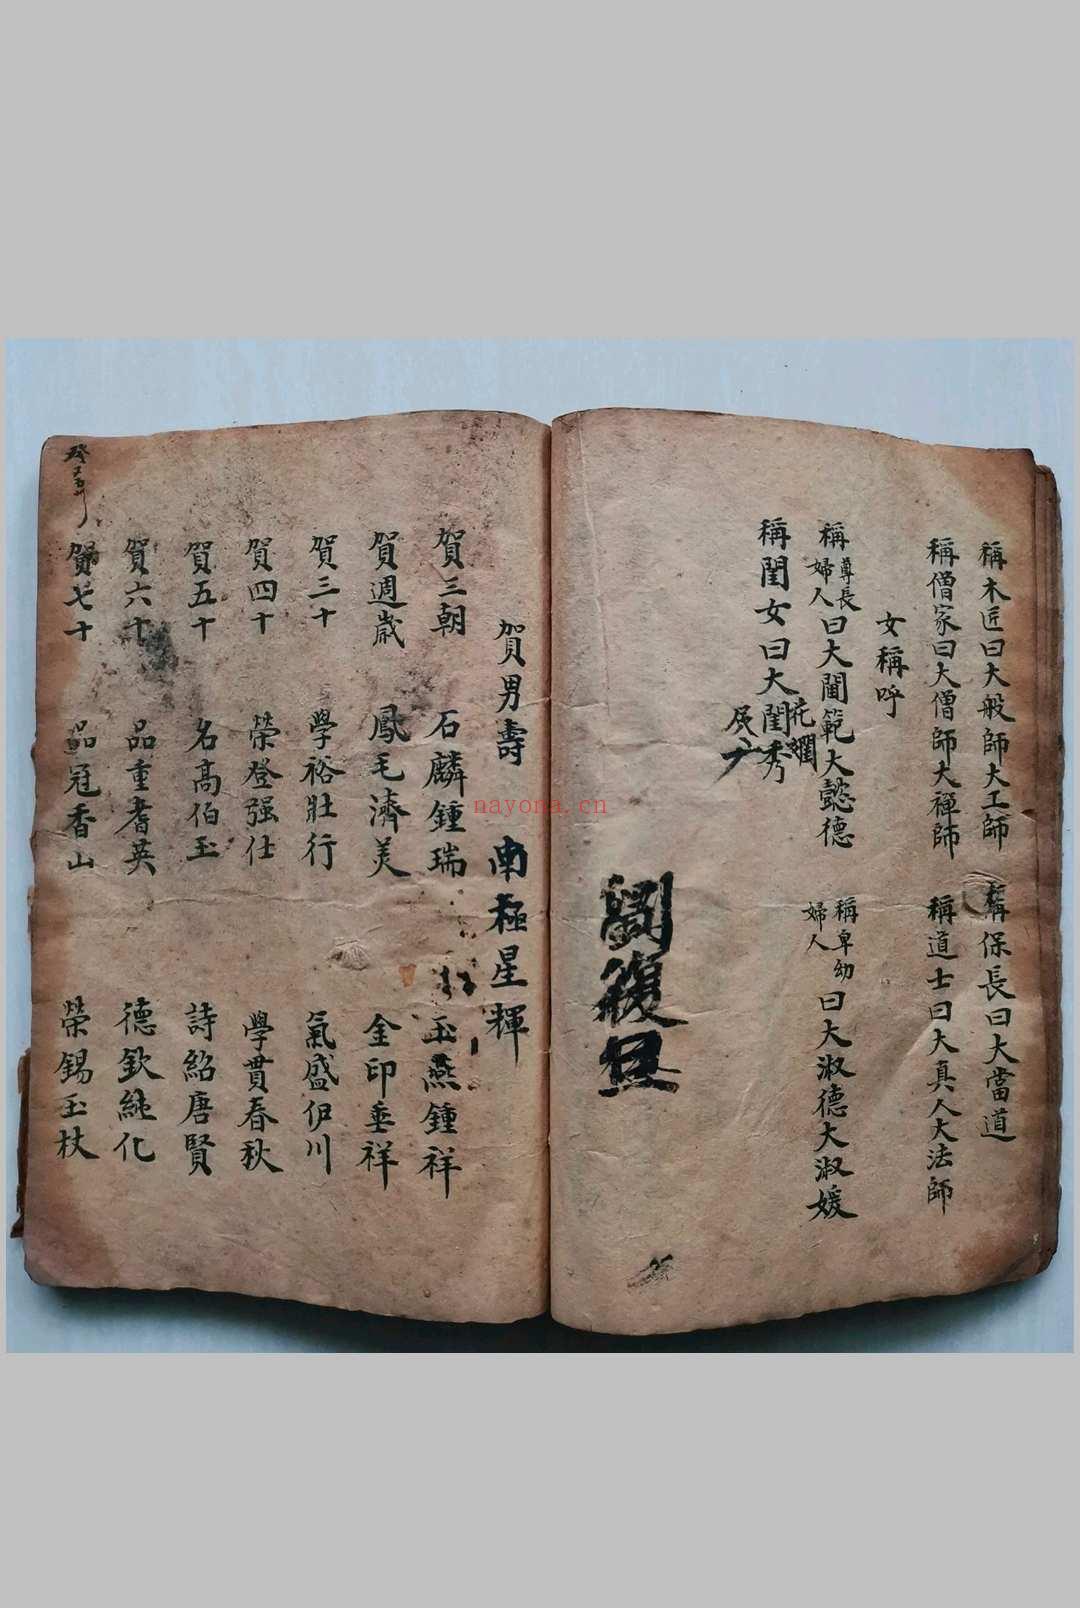 稱木匠曰大般師大工師 稱保長曰大當道
稱僧家曰大僧師大禪師 稱道士曰大真人大法師
女稱呼
稱尊長婦人曰大閫範大懿德 稱卑幼婦人曰大淑德大淑媛
稱閨女曰大閨秀
賀男壽 南極星輝
賀三朝 石麟鍾瑞 玉燕鍾祥
賀週歲 鳳毛濟美 金印垂祥
賀三十 學裕壯行 氣盛伊川
賀四十 榮登强仕 學貫春秋
賀五十 名高伯玉 詩紹唐賢
賀六十 品重耆英 德欽純化
賀七十 品冠香山 榮錫玉杖
nayona.cn